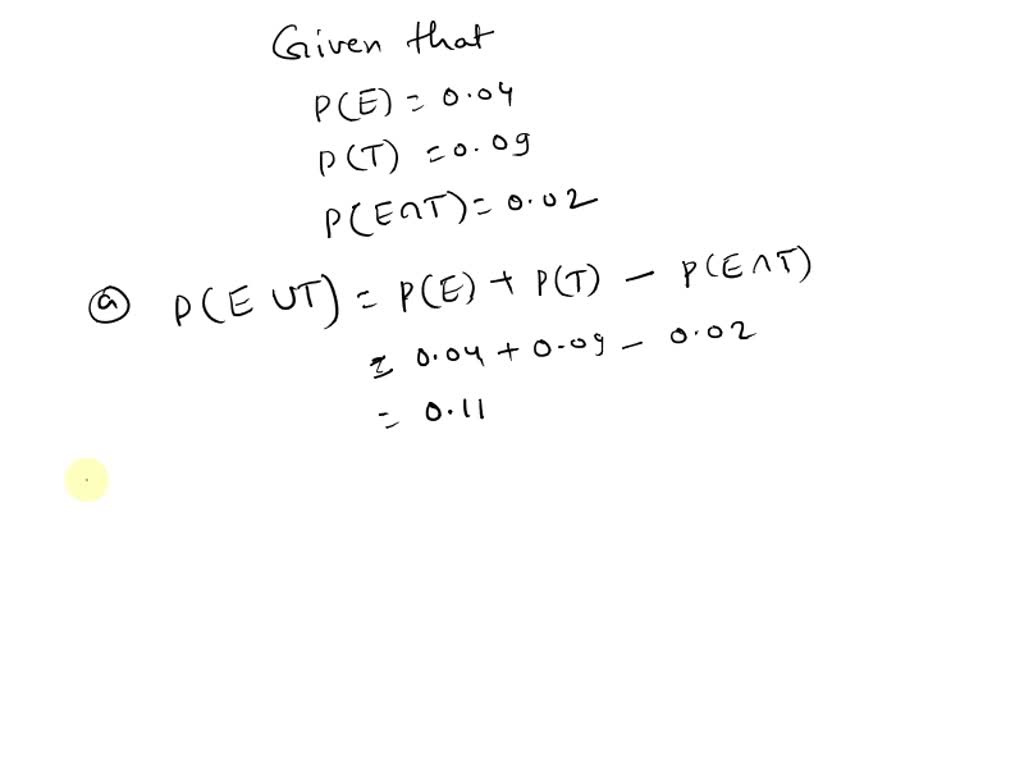 Given that
P(E) = 0.04
P(T) = 0.09
P(E∩T) = 0.02
ⓐ P(E ∪T) = P(E) + P(T) – P(E∩T)
= 0.04 + 0.09 – 0.02
= 0.11